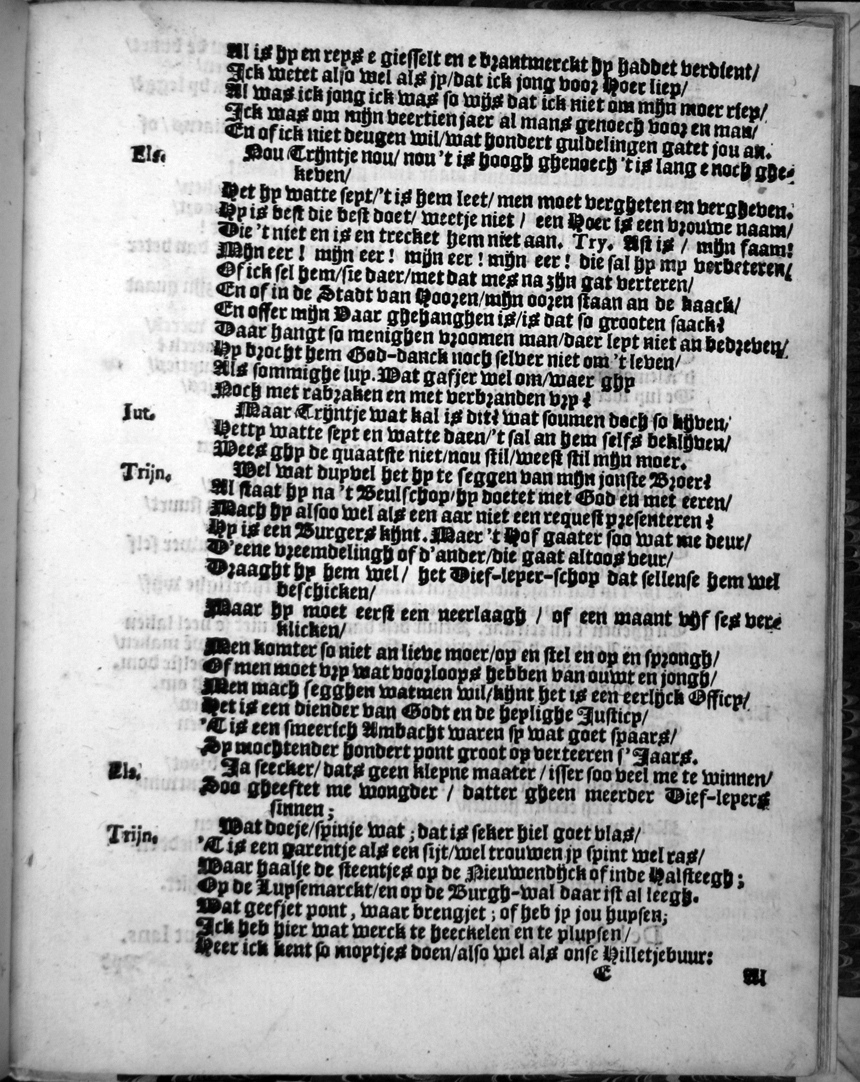 Al is hy en reys e giesselt en e brantmerckt hy haddet verdient/
Ick wetet also wel als jy/dat ick jong voor Hoer liep/
Al was ick jong ick was so wijs dat ick niet om mijn moer riep/
Ick was om mijn veertien jaer al mans genoech voor en man/
En of ick niet deugen wil/wat hondert guldelingen gatet jou an.
Els. Nou Trijntje nou/ nou 't is hoogh ghenoech 't is lang e noch ghe-
keven/
Het hy watte seyt/'t is hem leet/ men moet vergheten en vergheven.
Hy is best die best doet/ weetje niet / een Hoer is een vrouwe naam/
Die 't niet en is en trecket hem niet aan. Try. Ast is / mijn faam!
Mijn eer ! mijn eer ! mijn eer ! mijn eer ! die sal hy my verbeteren/
Of ick sel hem/sie daer/met dat mes na zijn gat verteren/
En of in de Stadt van Hooren/mijn ooren staan an de kaack/
En offer mijn Vaar ghehanghen is/is dat so grooten saack?
Daar hangt so menighen vroomen man/daer leyt niet an bedreven/
Hy brocht hem God-danck noch selver niet om 't leven/
Als sommighe luy. Wat gafjer wel om/waer ghy
Noch met rabraken en met verbranden vry?
Jut. Maar Trijntje wat kal is dit? wat soumen doch so kijven/
Hetty watte seyt en watte daen/'t sal an hem selfs beklijven/
Wees ghy de quaatste niet/nou stil/weest stil mijn moer.
Trijn. Wel wat duyvel het hy te seggen van mijn jonste Broer?
Al staat hy na 't Beulschop/hy doetet met God en met eeren/
Mach hy alsoo wel als een aar niet een request presenteren?
Hy is een Burgers kijnt. Maer 't Hof gaater soo wat me deur/
D'eene vreemdelingh of d'ander/die gaat altoos veur/
Draaght hy hem wel/ het Dief-leyer-schop dat sellense hem wel
beschicken/
Maar hy moet eerst een neerlaagh / of een maant vijf ses ver-
klicken/
Men komter so niet an lieve moer/op en stel en op en sprongh/
Of men moet vry wat voorloops hebben van ouwt en jongh/
Men mach segghen watmen wil/kijnt het is een eerlijck Officy/
Het is een diender van Godt en de heylighe Justicy/
'T is een smeerich Ambacht waren sy wat goet spaars/
Sy mochtender hondert pont groot op verteeren s'Jaars.
Els. Ja seecker/ dats geen kleyne maater / isser soo veel me te winnen/
Soo gheeftet me wongder / datter gheen meerder Dief-leyers
sinnen;
Trijn. Wat doeje/spinje wat ; dat is seker hiel goet vlas/
'T is een garentje als een sijt/wel trouwen jy spint wel ras/
Waar haalje de steentjes op de Nieuwendijck of inde Halsteegh ;
Op de Luysemarckt/en op de Burgh-wal daar ist al leegh.
Wat geefjet pont, waar brengjet ; of heb jy jou huysen;
Ick heb hier wat werck te heeckelen en te pluysen/
Heer ick kent so moptjes doen/also wel als onse Hilletjebuur:
E Al